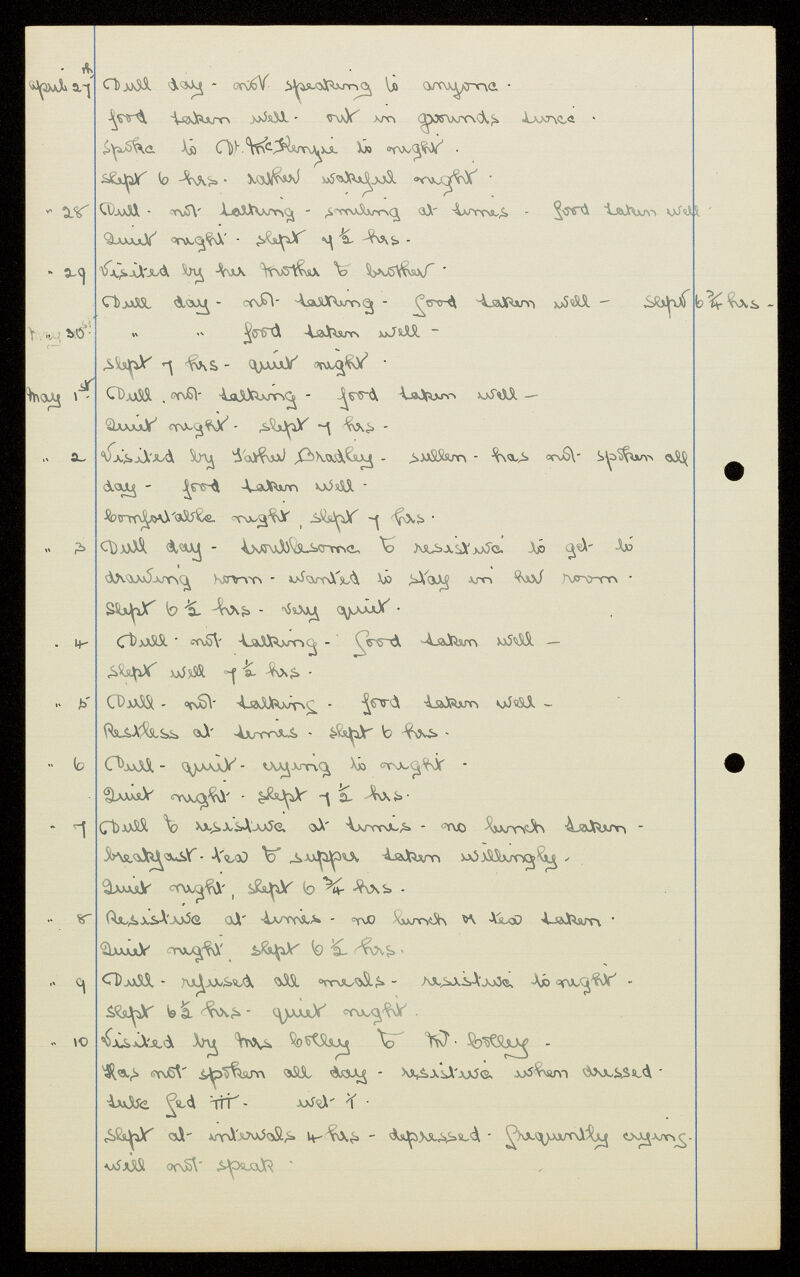 April 27th Dull day - not speaking to anyone.
food taken well. out in grounds twice.
Spoke to Dr. McKenzie to night.
Slept 6 hrs. rather wakeful night.
" 28 Dull. not talking - smiling at times - food taken well.
Quiet night. slept 7 ½ hrs.
" 29 Visited by her Mother & brother.
Dull day - not talking - food taken well - slept 6 ¾ hrs -
" 30 " " food taken well -
slept 7 hrs - quiet night.
May 1st Dull. not talking - food taken well -
Quiet night. slept 7 hrs -
" 2 Visited by Father Bradley - sullen - has not spoken all
day - food taken well -
Comfortable night, slept 7 hrs.
" 3 Dull day - troublesome & resistive to get to
drawing room - wanted to stay in her room.
Slept 6 ½ hrs - very quiet.
" 4 Dull. not talking - food taken well -
slept well 7 ½ hrs.
" 5 Dull - not talking - food taken well -
Restless at times - slept 6 hrs.
" 6 Dull - quiet - crying to night -
Quiet night - slept 7 ½ hrs.
" 7 Dull & resistive at times - no lunch taken -
breakfast - tea & supper taken willingly.
Quiet night, slept 6 ¾ hrs.
" 8 Resistive at times - no lunch or tea taken.
Quiet night, slept 6 ½ hrs.
" 9 Dull - refused all meals - resistive to night -
Slept 6 ½ hrs - quiet night.
" 10 Visited by Mrs Colley & Mr. Colley -
Has not spoken all day - resistive when dressed.
tube fed III - wet I.
Slept at intervals 4 hrs - depressed - frequently crying.
will not speak.